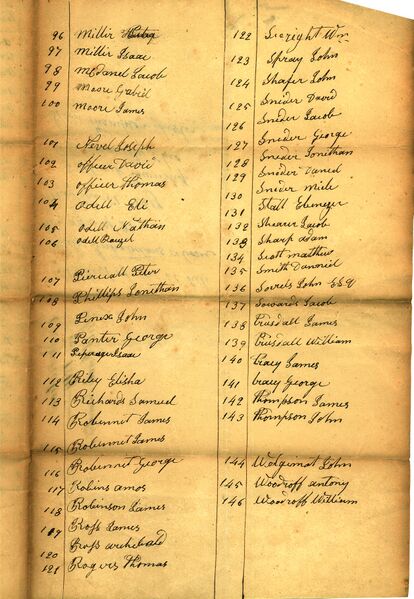 96 Millir
97 Millir Isaac
98 McDanel Jacob
99 Moore David
100 Moore James
101 Nevel Joseph
102 officer David
103 officer Thomas
104 Odell Eli
105 odell Nathan
106 odell
107 Peter
108 Phillips Jonithan
109 Penix John
110 Panter George
111 Isaac
112 Riley Elisha
113 Richards Samuel
114 Robennit James
115 Robennit James
116 Robennit George
117 Robins amos
118 Robinson James
119 Ross James
120 Ross
121 Rogers Thomas
122 Searight Wm
123 Spray John
124 Shafer John
125 Snider David
126 Snider Jacob
127 Snider George
128 Snider Jonithan
129 Snider Daniel
130 Snider
131 Stall Ebenezer
132 Shearer Jacob
133 Sharp adam
134 Scott mathew
135 Smith
136 Sorrels John ESQ
137 Sowards Jacob
138 James
139 William
140 Tracy James
141 Tracy George
142 Thompson James
143 Thompson John
144 John
145 Woodroff antony
146 Woodroff William